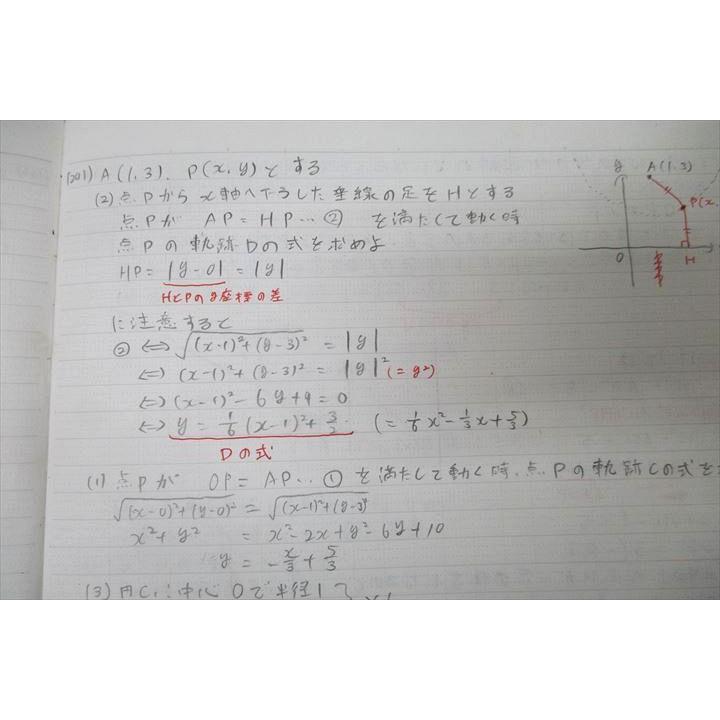 (201) A(1,3), P(x,y)とする
(2) 点Pからx軸へ下ろした垂線の足をHとする
点Pが AP=HP…② を満たして動く時
点Pの軌跡Dの式を求めよ
HP=|y-0|=|y|
HとPのy座標の差
に注意すると
② ⇔ √(x-1)²+(y-3)² = |y|
⇔ (x-1)²+(y-3)² = |y|² (=y²)
⇔ (x-1)²-6y+9=0
⇔ y=1/6(x-1)²+3/2 (=1/6x²-1/3x+5/3)
Dの式
(1) 点Pが OP=AP…① を満たして動く時、点Pの軌跡Cの式を
√(x-0)²+(y-0)² = √(x-1)²+(y-3)²
x²+y² = x²-2x+y²-6y+10
y = -x/3+5/3
(3) 円C₁:中心Oで半径1
y
A(1,3)
P(x,
O
H